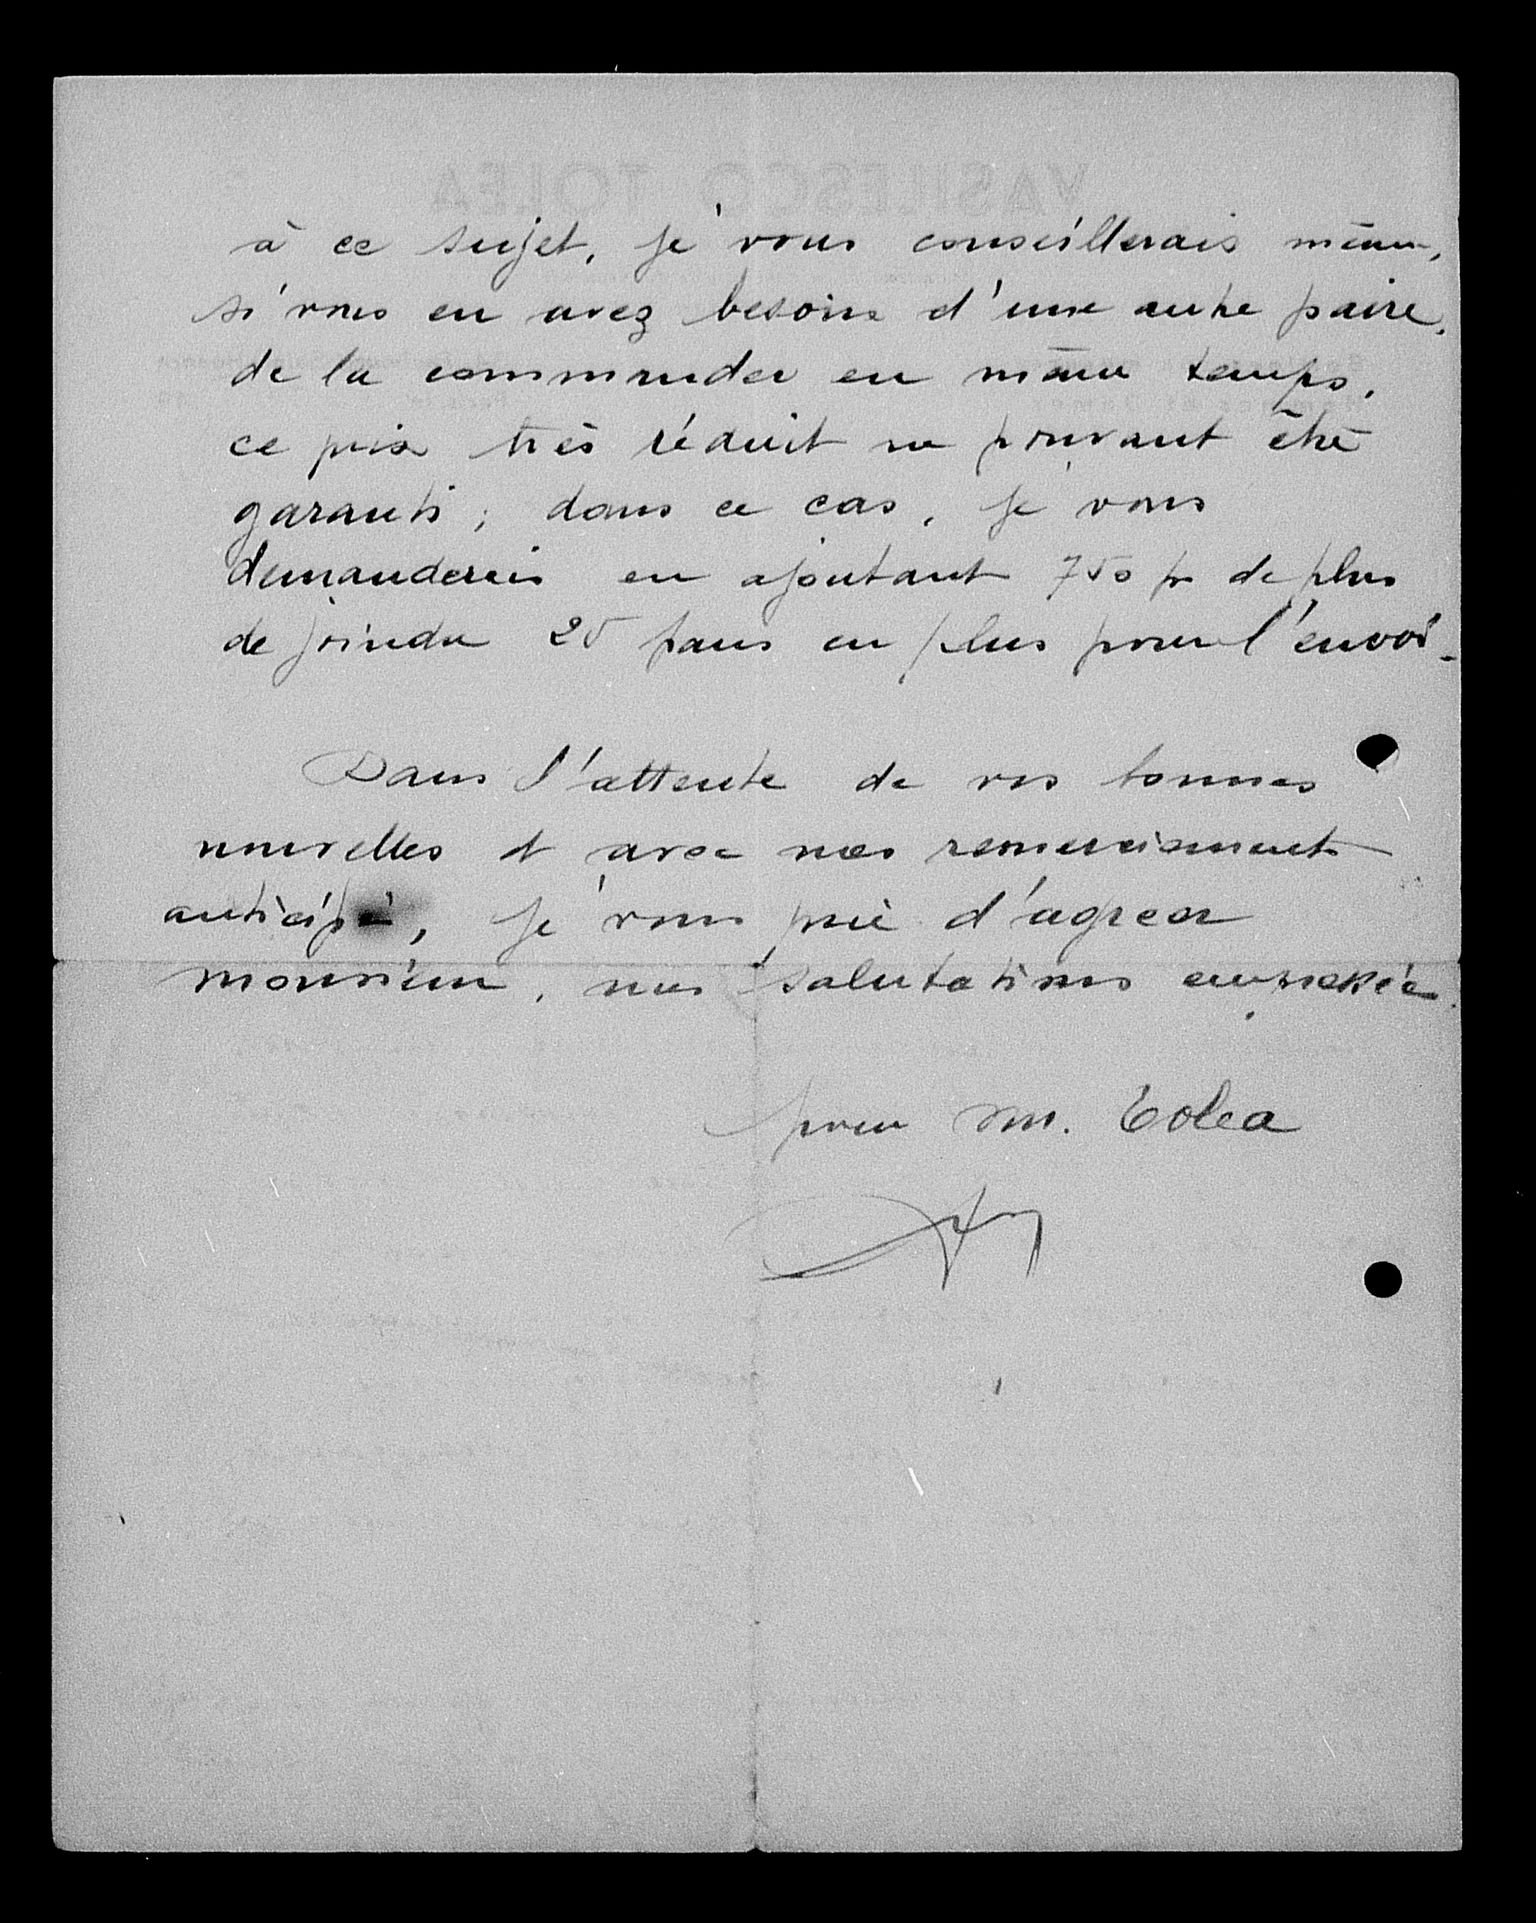 à ce sujet, je vous conseillerais même,
si vous en avez besoin d'une autre paire,
de la commander en même temps,
ce prix très réduit ne pouvant être
garanti ; dans ce cas, je vous
demanderais en ajoutant 750 fr de plus
de joindre 25 francs en plus pour l'envoi.
Dans l'attente de vos bonnes
nouvelles et avec nos remerciements
anticipés, je vous prie d'agréer
monsieur, nos salutations empressées.
pour M. Tolea